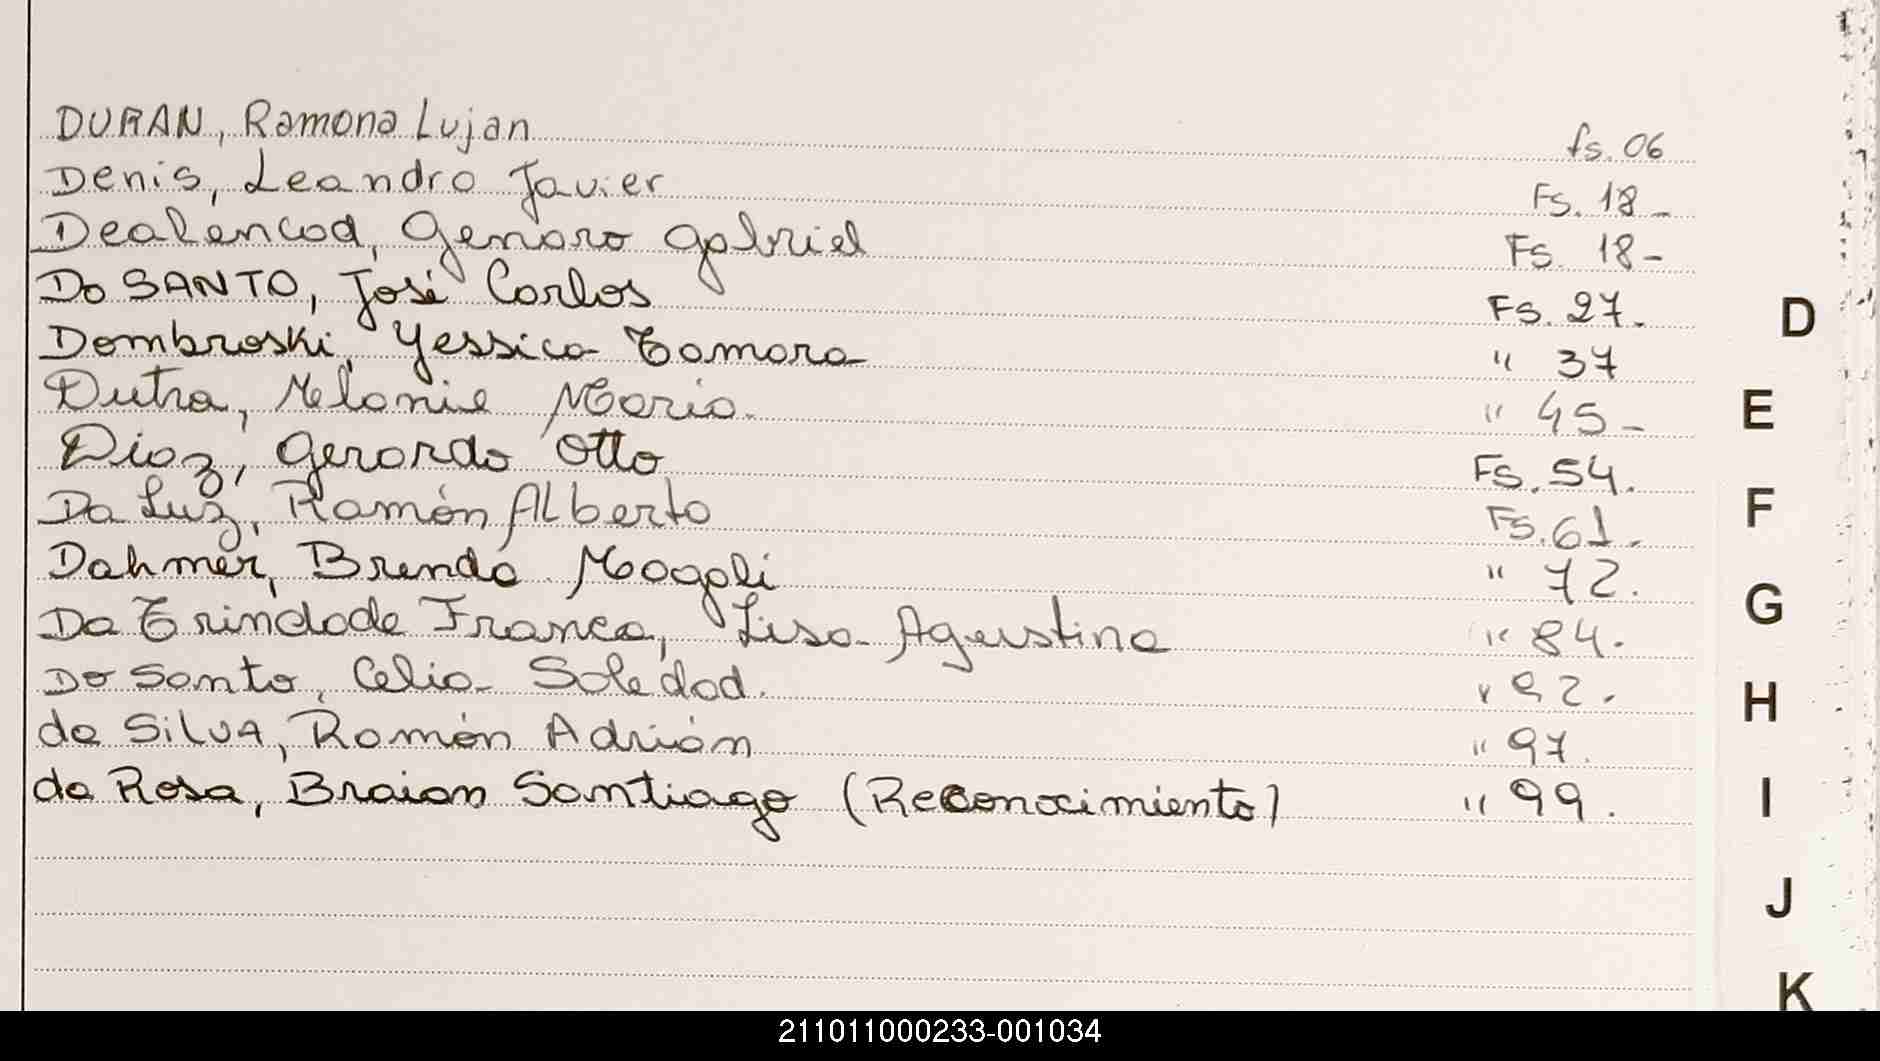 DURAN, Ramona Lujan fs. 06
Denis, Leandro Javier Fs. 18-
Dealencod, Genaro Gabriel Fs. 18-
Do SANTO, José Carlos Fs. 27.
Dombroski, Yessica Tamara " 37
Dutra, Melanie Maria. " 45-
Diaz, Gerardo Otto Fs. 54.
Da Luz, Ramón Alberto Fs. 61.
Dahmer, Brenda Magali " 72.
Da Trindade Franca, Lisa Agustina " 84.
Do Santo, Celia Soledad. " 92.
da SiLVA, Ramón Adrián " 97.
da Rosa, Braian Santiago (Reconocimiento) " 99.
D
E
F
G
H
I
J
K
211011000233-001034